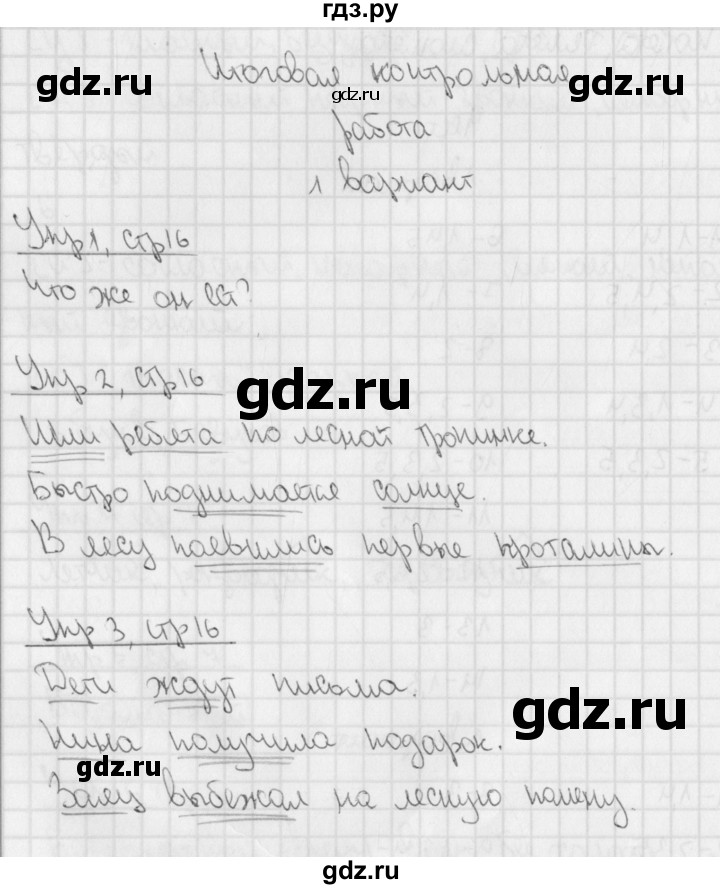 гдз.ру
Итоговая контрольная
gdz.ru gdz.ru gdz.ru
работа
1 вариант
Упр 1, стр 16
Что же он ест?
Упр 2, стр 16
gdz.ru
Шли ребята по лесной тропинке.
Быстро поднимается солнце.
В лесу появились первые проталины.
Упр 3, стр 16
Дети ждут письма.
gdz.ru
Нина получила подарок.
gdz.ru
Заяц выбежал на лесную поляну.
gdz.ru